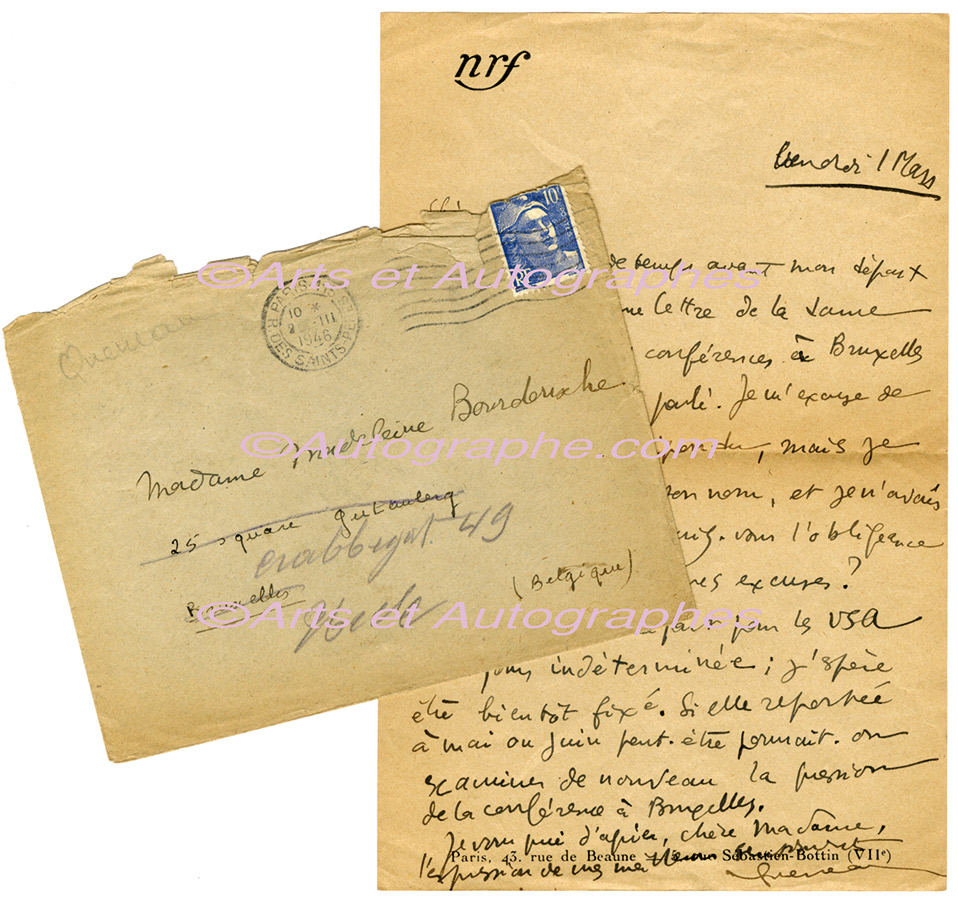 nrf
Vendredi 1 Mars
de temps avant mon départ
lettre de la dame
conférences à Bruxelles
parlé. Je m'excuse de
mais je
son nom, et je n'avais
vous l'obligeance
mes excuses ?
pour les USA
indéterminée ; j'espère
être bientôt fixé. Si elle reportée
à mai ou Juin peut-être pourrait-on
examiner de nouveau la question
de la conférence à Bruxelles.
Je vous prie d'agréer, chère Madame,
l'expression de mes
Queneau
Paris, 43, rue de Beaune Sébastien-Bottin (VIIe)
10F
Queneau
PARIS
R. DES SAINTS-PÈRES
10 *
2 - III
1946
Madame Madeleine Bourdouxhe
25 square Gutenberg
crabbegat 49
Bruxelles
(Belgique)
Uccle
©Arts et Autographes.com
©Autographe.com
©Arts et Autographes